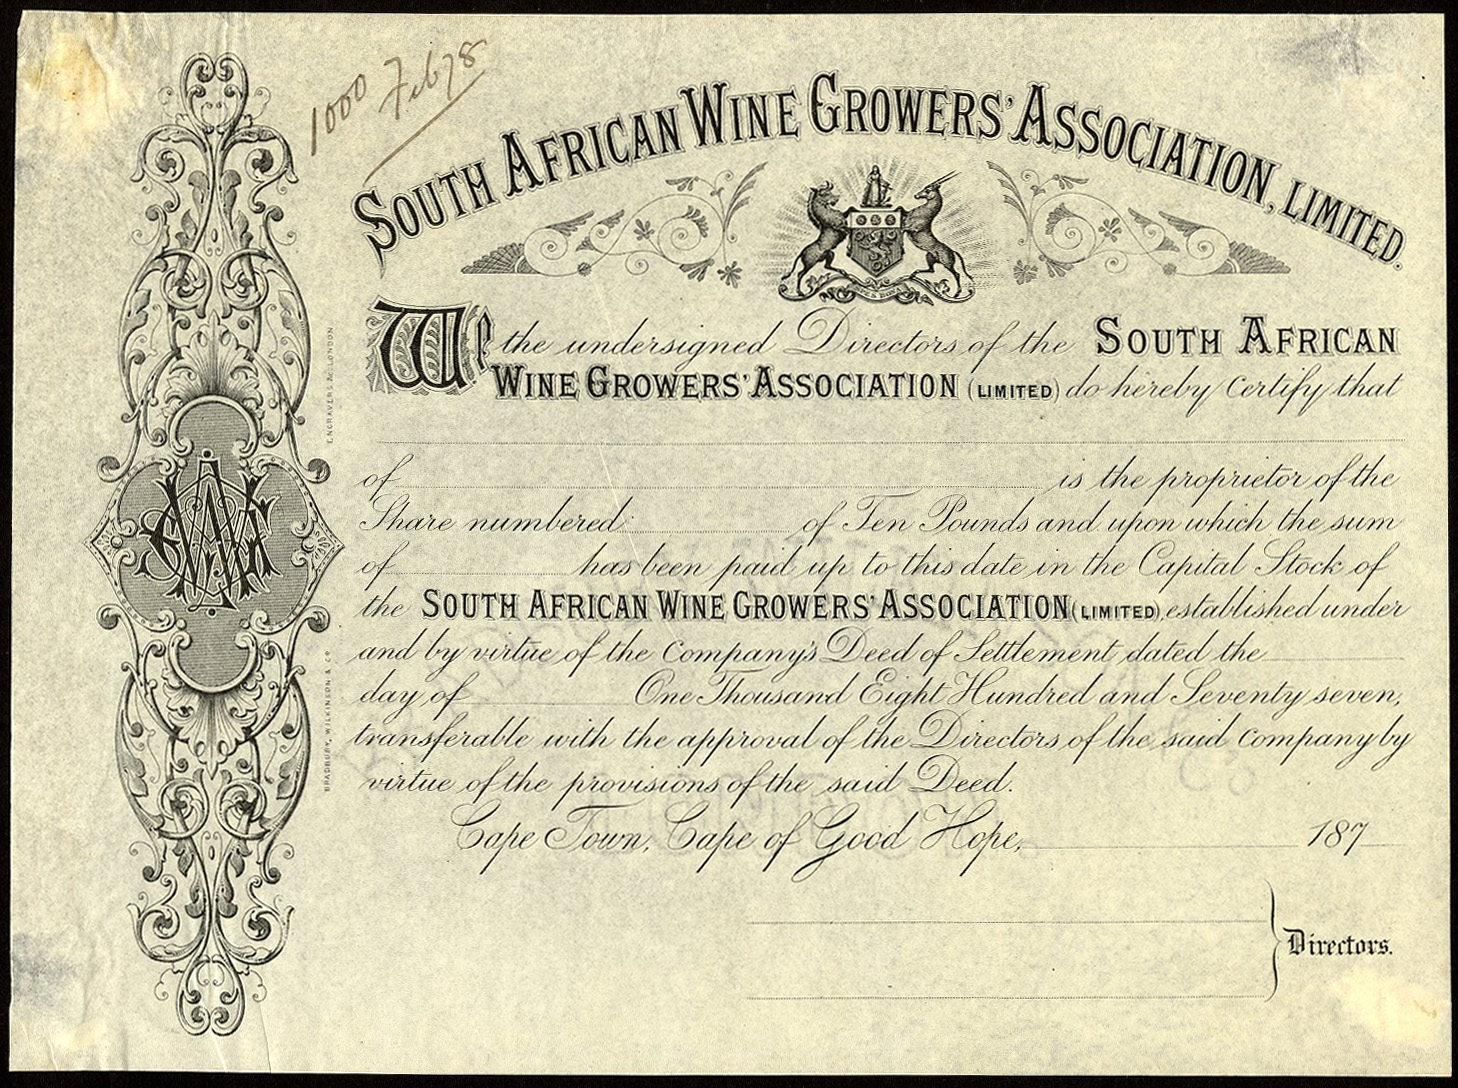 1000 Feb 78
SOUTH AFRICAN WINE GROWERS' ASSOCIATION, LIMITED.
SPES BONA
We the undersigned Directors of the SOUTH AFRICAN
WINE GROWERS' ASSOCIATION (LIMITED) do hereby Certify that
of is the proprietor of the
Share numbered of Ten Pounds and upon which the sum
of has been paid up to this date in the Capital Stock of
the SOUTH AFRICAN WINE GROWERS' ASSOCIATION (LIMITED), established under
and by virtue of the Company's Deed of Settlement dated the
day of One Thousand Eight Hundred and Seventy seven,
transferable with the approval of the Directors of the said Company by
virtue of the provisions of the said Deed.
Cape Town, Cape of Good Hope, 187
Directors.
BRADBURY, WILKINSON & Co. ENGRAVERS &c. LONDON